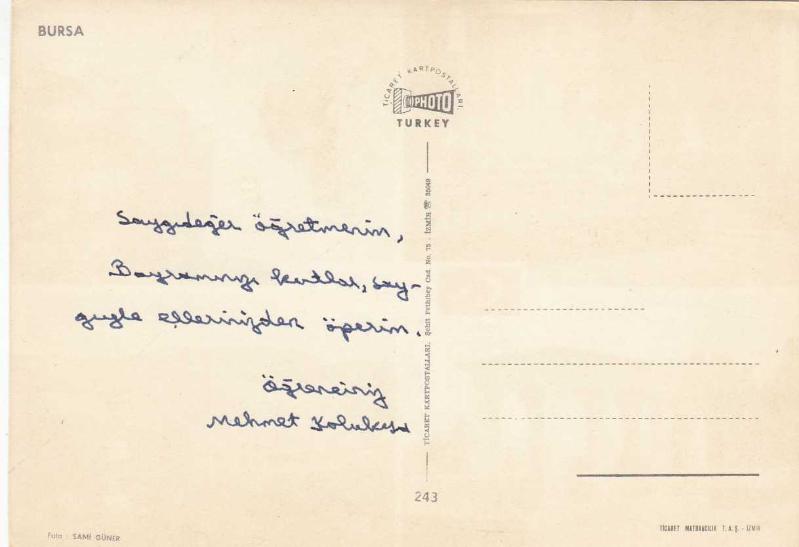 BURSA
TİCARET KARTPOSTALLARI
PHOTO
TURKEY
Saygıdeğer öğretmenim,
Bayramınızı kutlar, say-
gıyla ellerinizden öperim.
Öğrenciniz
Mehmet
TİCARET KARTPOSTALLARI, Şehit Fethibey Cad. No. 75 - İZMİR ☎ 35049
243
Foto : SAMİ GÜNER
TİCARET MATBAACILIK T. A. Ş. - İZMİR